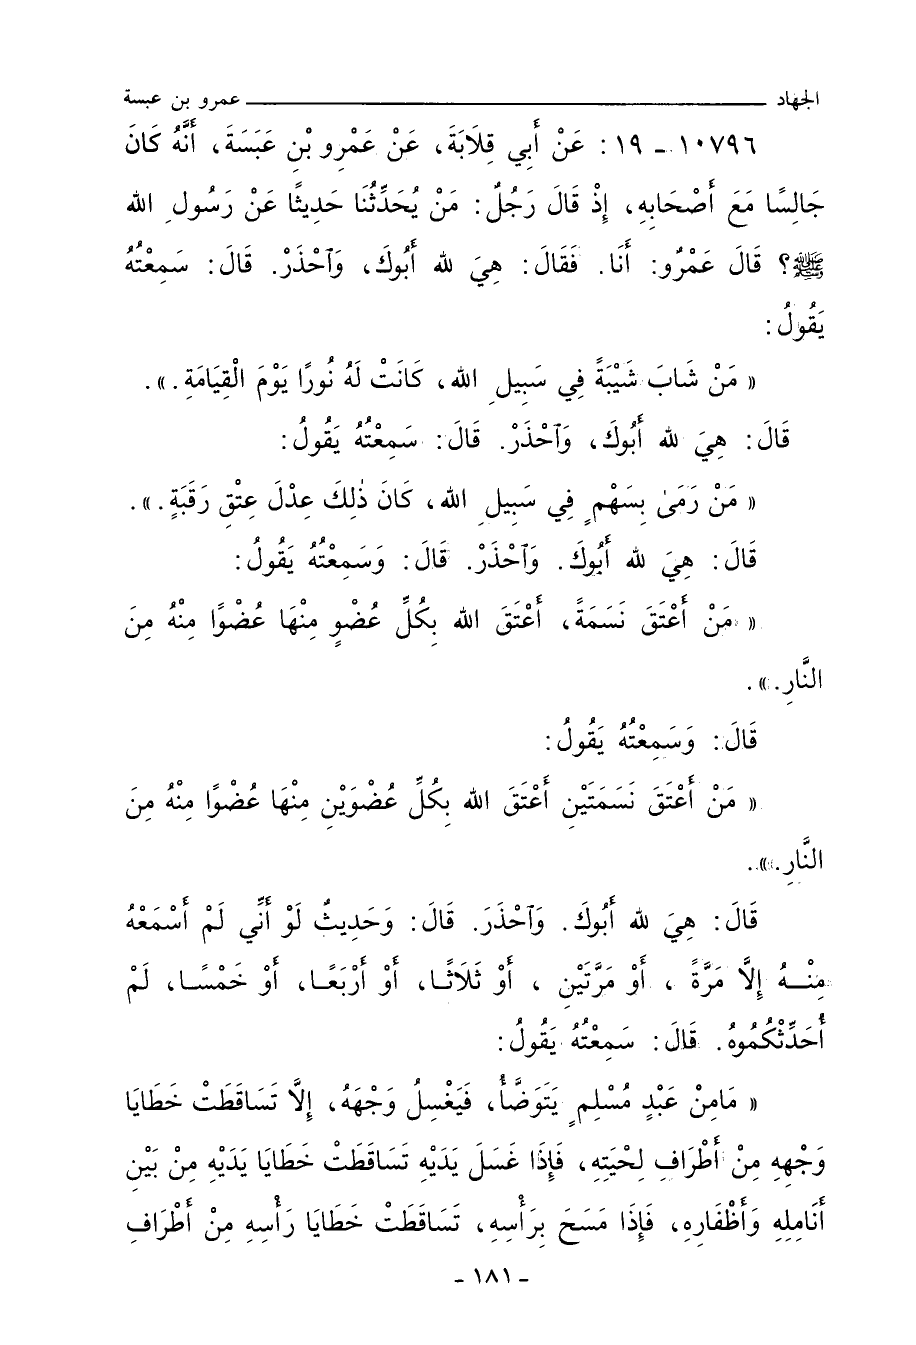 الجهاد ــــــــــــــــــــــــــــــــ عمرو بن عبسة
١٠٧٩٦ ـ ١٩ : عَنْ أَبِي قِلَابَةَ، عَنْ عَمْرِو بْنِ عَبَسَةَ، أَنَّهُ كَانَ
جَالِسًا مَعَ أَصْحَابِهِ، إِذْ قَالَ رَجُلٌ: مَنْ يُحَدِّثُنَا حَدِيثًا عَنْ رَسُولِ الله
ﷺ؟ قَالَ عَمْرُو: أَنَا. فَقَالَ: هِيَ لله أَبُوكَ، وَٱحْذَرْ. قَالَ: سَمِعْتُهُ
يَقُولُ:
« مَنْ شَابَ شَيْبَةً فِي سَبِيلِ الله، كَانَتْ لَهُ نُورًا يَوْمَ الْقِيَامَةِ.».
قَالَ: هِيَ لله أَبُوكَ، وَٱحْذَرْ. قَالَ: سَمِعْتُهُ يَقُولُ:
« مَنْ رَمَىٰ بِسَهْمٍ فِي سَبِيلِ الله، كَانَ ذٰلِكَ عِدْلَ عِتْقِ رَقَبَةٍ.».
قَالَ: هِيَ لله أَبُوكَ. وَٱحْذَرْ. قَالَ: وَسَمِعْتُهُ يَقُولُ:
« مَنْ أَعْتَقَ نَسَمَةً، أَعْتَقَ الله بِكُلِّ عُضْوٍ مِنْهَا عُضْوًا مِنْهُ مِنَ
النَّارِ.».
قَالَ: وَسَمِعْتُهُ يَقُولُ:
« مَنْ أَعْتَقَ نَسَمَتَيْنِ أَعْتَقَ الله بِكُلِّ عُضْوَيْنِ مِنْهَا عُضْوًا مِنْهُ مِنَ
النَّارِ.».
قَالَ: هِيَ لله أَبُوكَ. وَٱحْذَرَ. قَالَ: وَحَدِيثٌ لَوْ أَنِّي لَمْ أَسْمَعْهُ
مِنْـهُ إِلَّا مَرَّةً ، أَوْ مَرَّتَيْنِ ، أَوْ ثَلَاثًـا، أَوْ أَرْبَعًـا، أَوْ خَمْسًـا، لَمْ
أُحَدِّثْكُمُوهُ. قَالَ: سَمِعْتُهُ يَقُولُ:
« مَامِنْ عَبْدٍ مُسْلِمٍ يَتَوَضَّأُ، فَيَغْسِلُ وَجْهَهُ، إِلَّا تَسَاقَطَتْ خَطَايَا
وَجْهِهِ مِنْ أَطْرَافِ لِحْيَتِهِ، فَإِذَا غَسَلَ يَدَيْهِ تَسَاقَطَتْ خَطَايَا يَدَيْهِ مِنْ بَيْنِ
أَنَامِلِهِ وَأَظْفَارِهِ، فَإِذَا مَسَحَ بِرَأْسِهِ، تَسَاقَطَتْ خَطَايَا رَأْسِهِ مِنْ أَطْرَافِ
- ١٨١ -